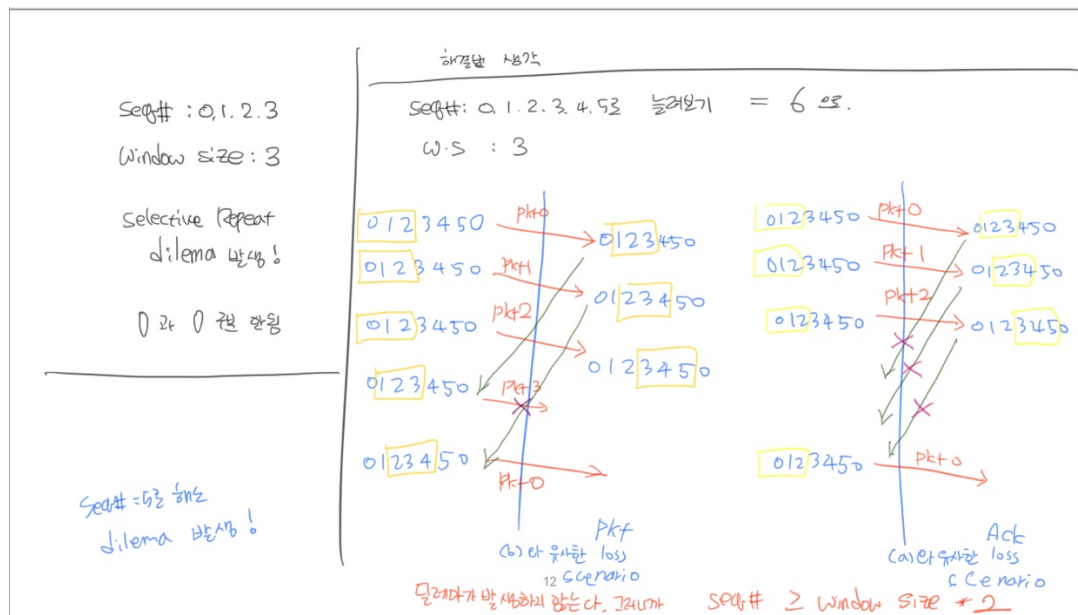 해결법 생각
seq# : 0.1.2.3
window size : 3
selective Repeat
dilema 발생!
0 과 0 구분 안됨
seq# = 5로 해도
dilema 발생!
seq#: 0.1.2.3.4.5로 늘려보기 = 6 으로.
w.s : 3
0123450
pkt0
0123450
0123450
pkt1
0123450
0123450
pkt2
0123450
0123450
pkt3
0123450
pkt0
(b)와 유사한 pkt loss
scenario
0123450
pkt0
0123450
0123450
pkt1
0123450
0123450
pkt2
0123450
0123450
pkt0
(a)와 유사한 Ack loss
scenario
12
딜레마가 발생하지 않는다. 그러니까 seq# ≥ window size * 2